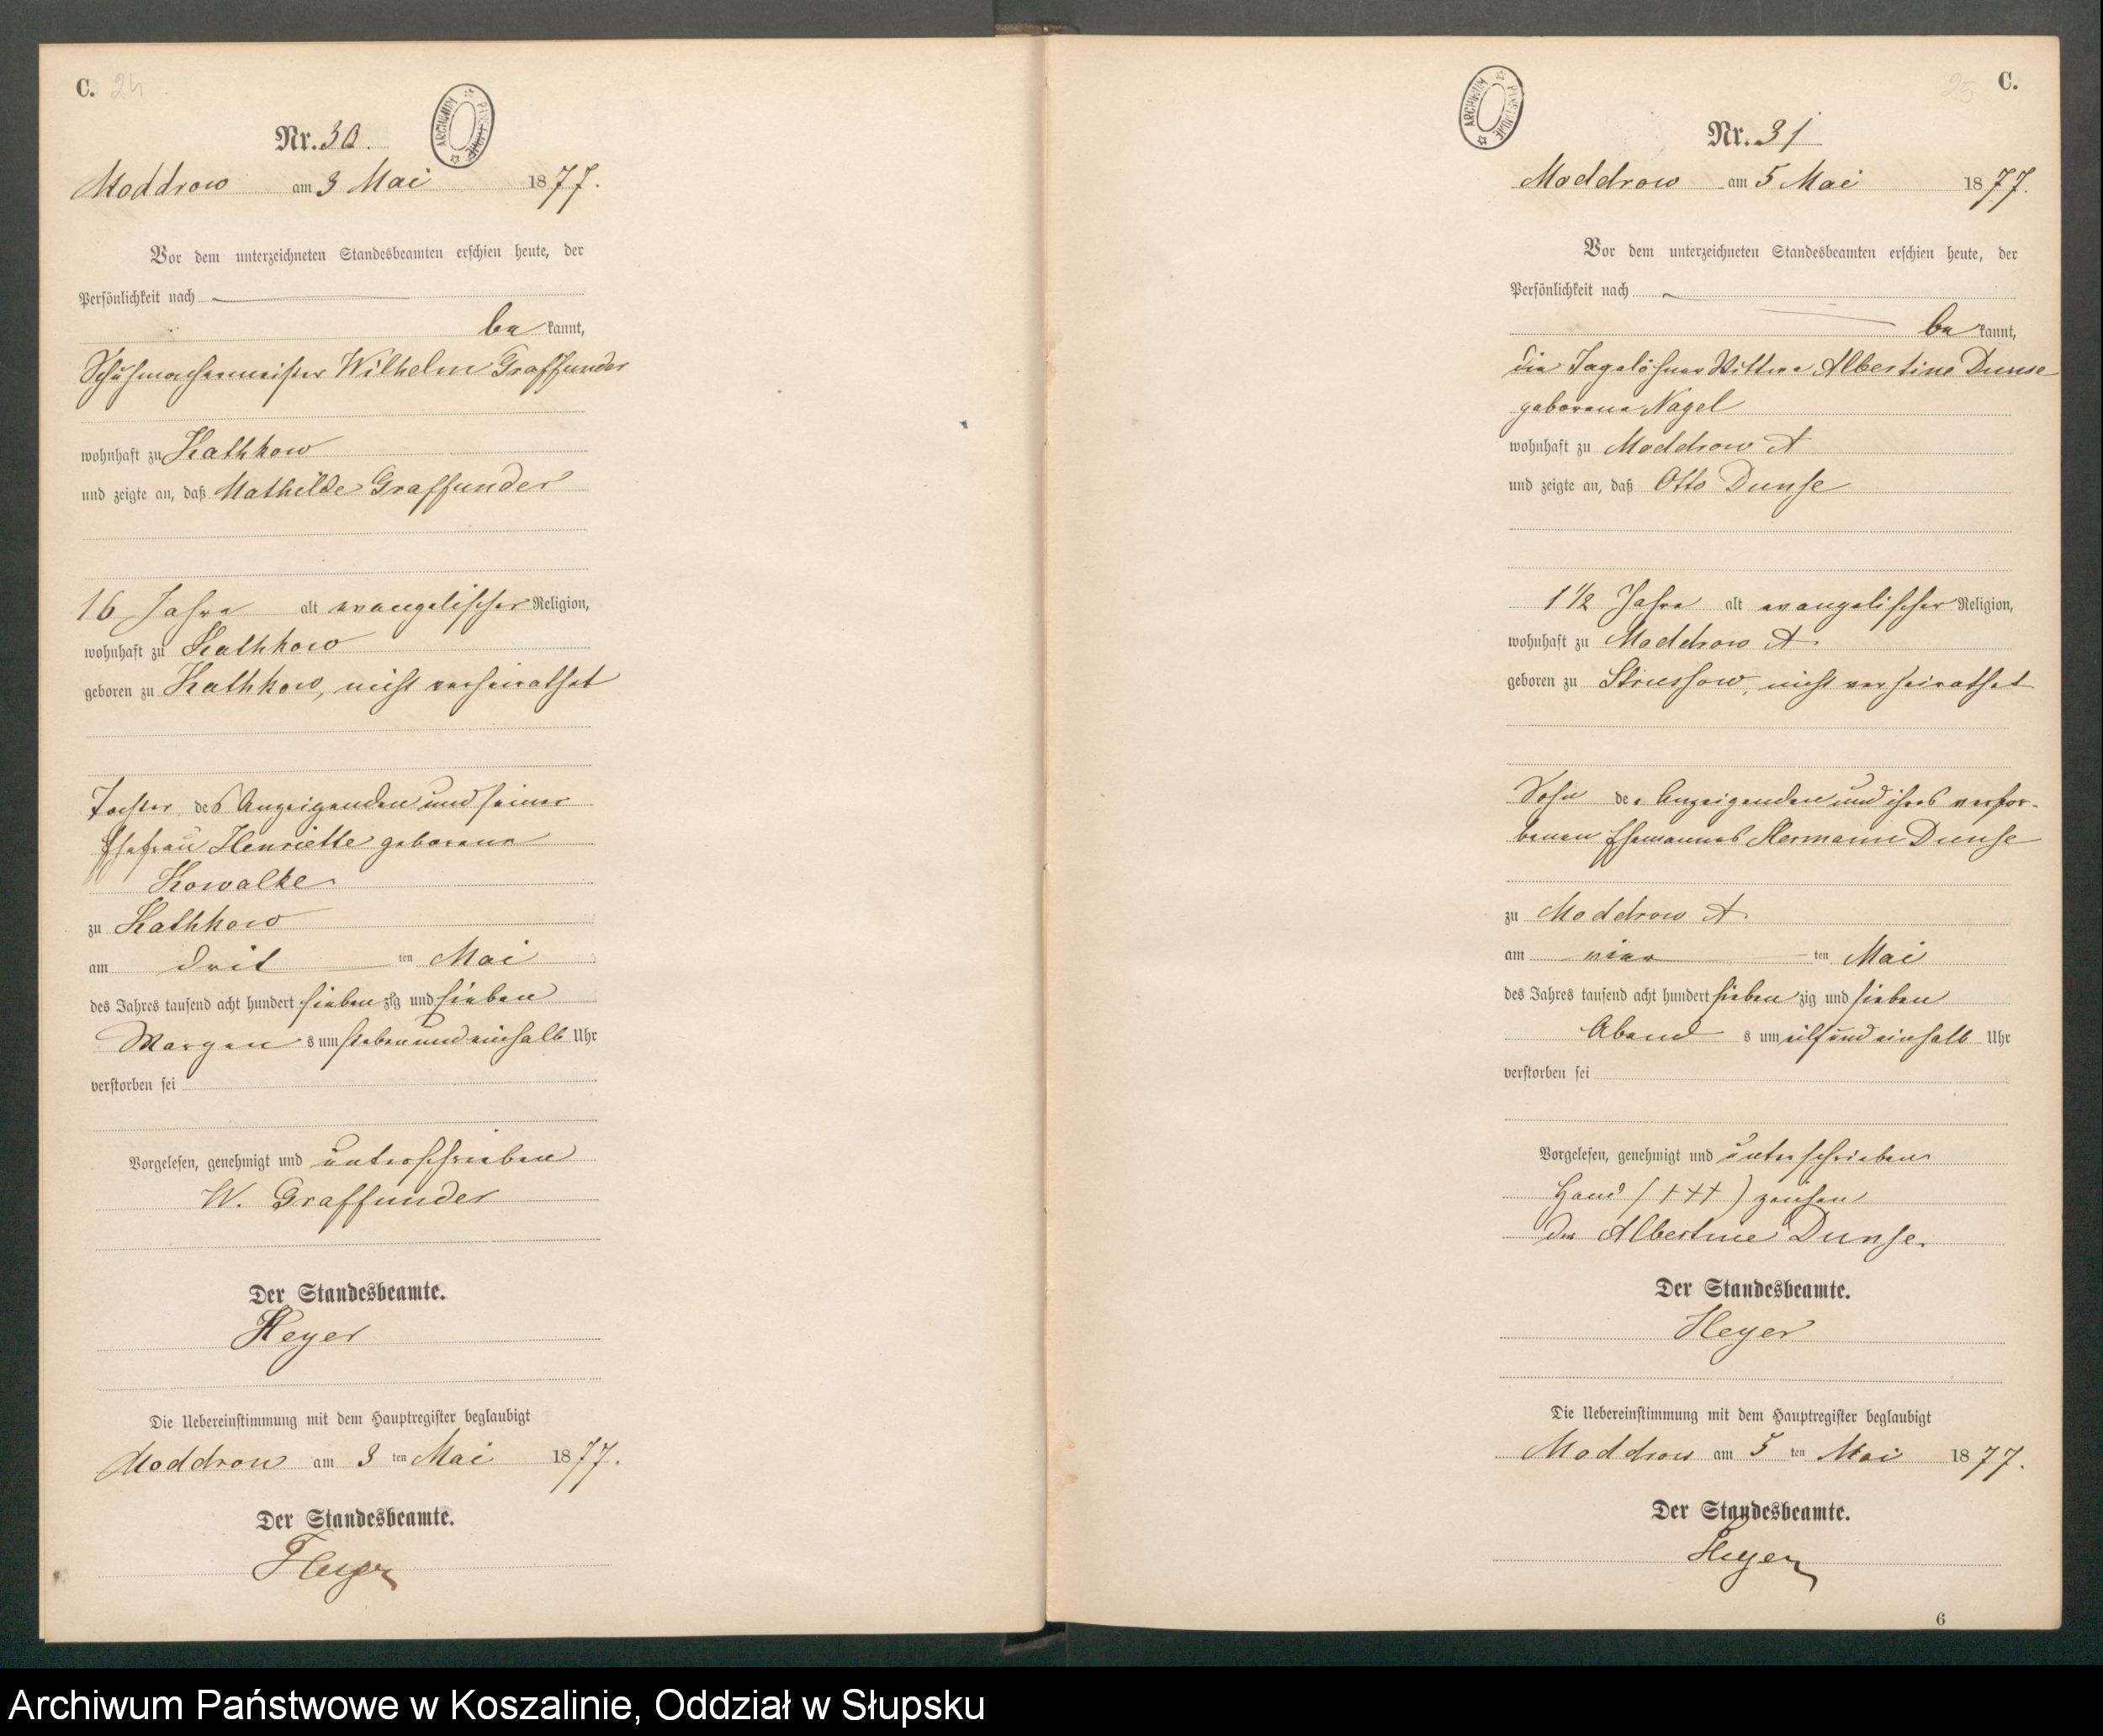 C. 24
Nr. 30.
Moddrow am 3 Mai 1877.
Vor dem unterzeichneten Standesbeamten erschien heute, der
Persönlichkeit nach
be kannt,
Schuhmachermeister Wilhelm Graffunder
wohnhaft zu Kathkow
und zeigte an, daß Mathilde Graffunder
16 Jahre alt evangelischer Religion,
wohnhaft zu Kathkow
geboren zu Kathkow, nicht verheirathet
Tochter des Anzeigenden und seiner
Ehefrau Henriette geborene
Kowalke
zu Kathkow
am drit ten Mai
des Jahres tausend acht hundert siebenzig und sieben
Morgen s um sieben und einhalb Uhr
verstorben sei
Vorgelesen, genehmigt und unterschrieben
W. Graffunder
Der Standesbeamte.
Heyer
Die Uebereinstimmung mit dem Hauptregister beglaubigt
Moddrow am 3 ten Mai 1877.
Der Standesbeamte.
Heyer
ARCHIWUM PAŃSTWOWE
25 C.
Nr. 31
Moddrow am 5 Mai 1877.
Vor dem unterzeichneten Standesbeamten erschien heute, der
Persönlichkeit nach
be kannt,
die Tagelöhner Wittwe Albertine Dunse
geborene Nagel
wohnhaft zu Moddrow A
und zeigte an, daß Otto Dunse
1 1/2 Jahre alt evangelischer Religion,
wohnhaft zu Moddrow A
geboren zu Strussow, nicht verheirathet
Sohn der Anzeigenden und ihres verstor-
benen Ehemannes Hermann Dunse
zu Moddrow A
am vier ten Mai
des Jahres tausend acht hundert sieben zig und sieben
Abend s um eilf und einhalb Uhr
verstorben sei
Vorgelesen, genehmigt und unterschrieben
Hand (+++) zeichen
der Albertine Dunse.
Der Standesbeamte.
Heyer
Die Uebereinstimmung mit dem Hauptregister beglaubigt
Moddrow am 5 ten Mai 1877.
Der Standesbeamte.
Heyer
6
ARCHIWUM PAŃSTWOWE
Archiwum Państwowe w Koszalinie, Oddział w Słupsku